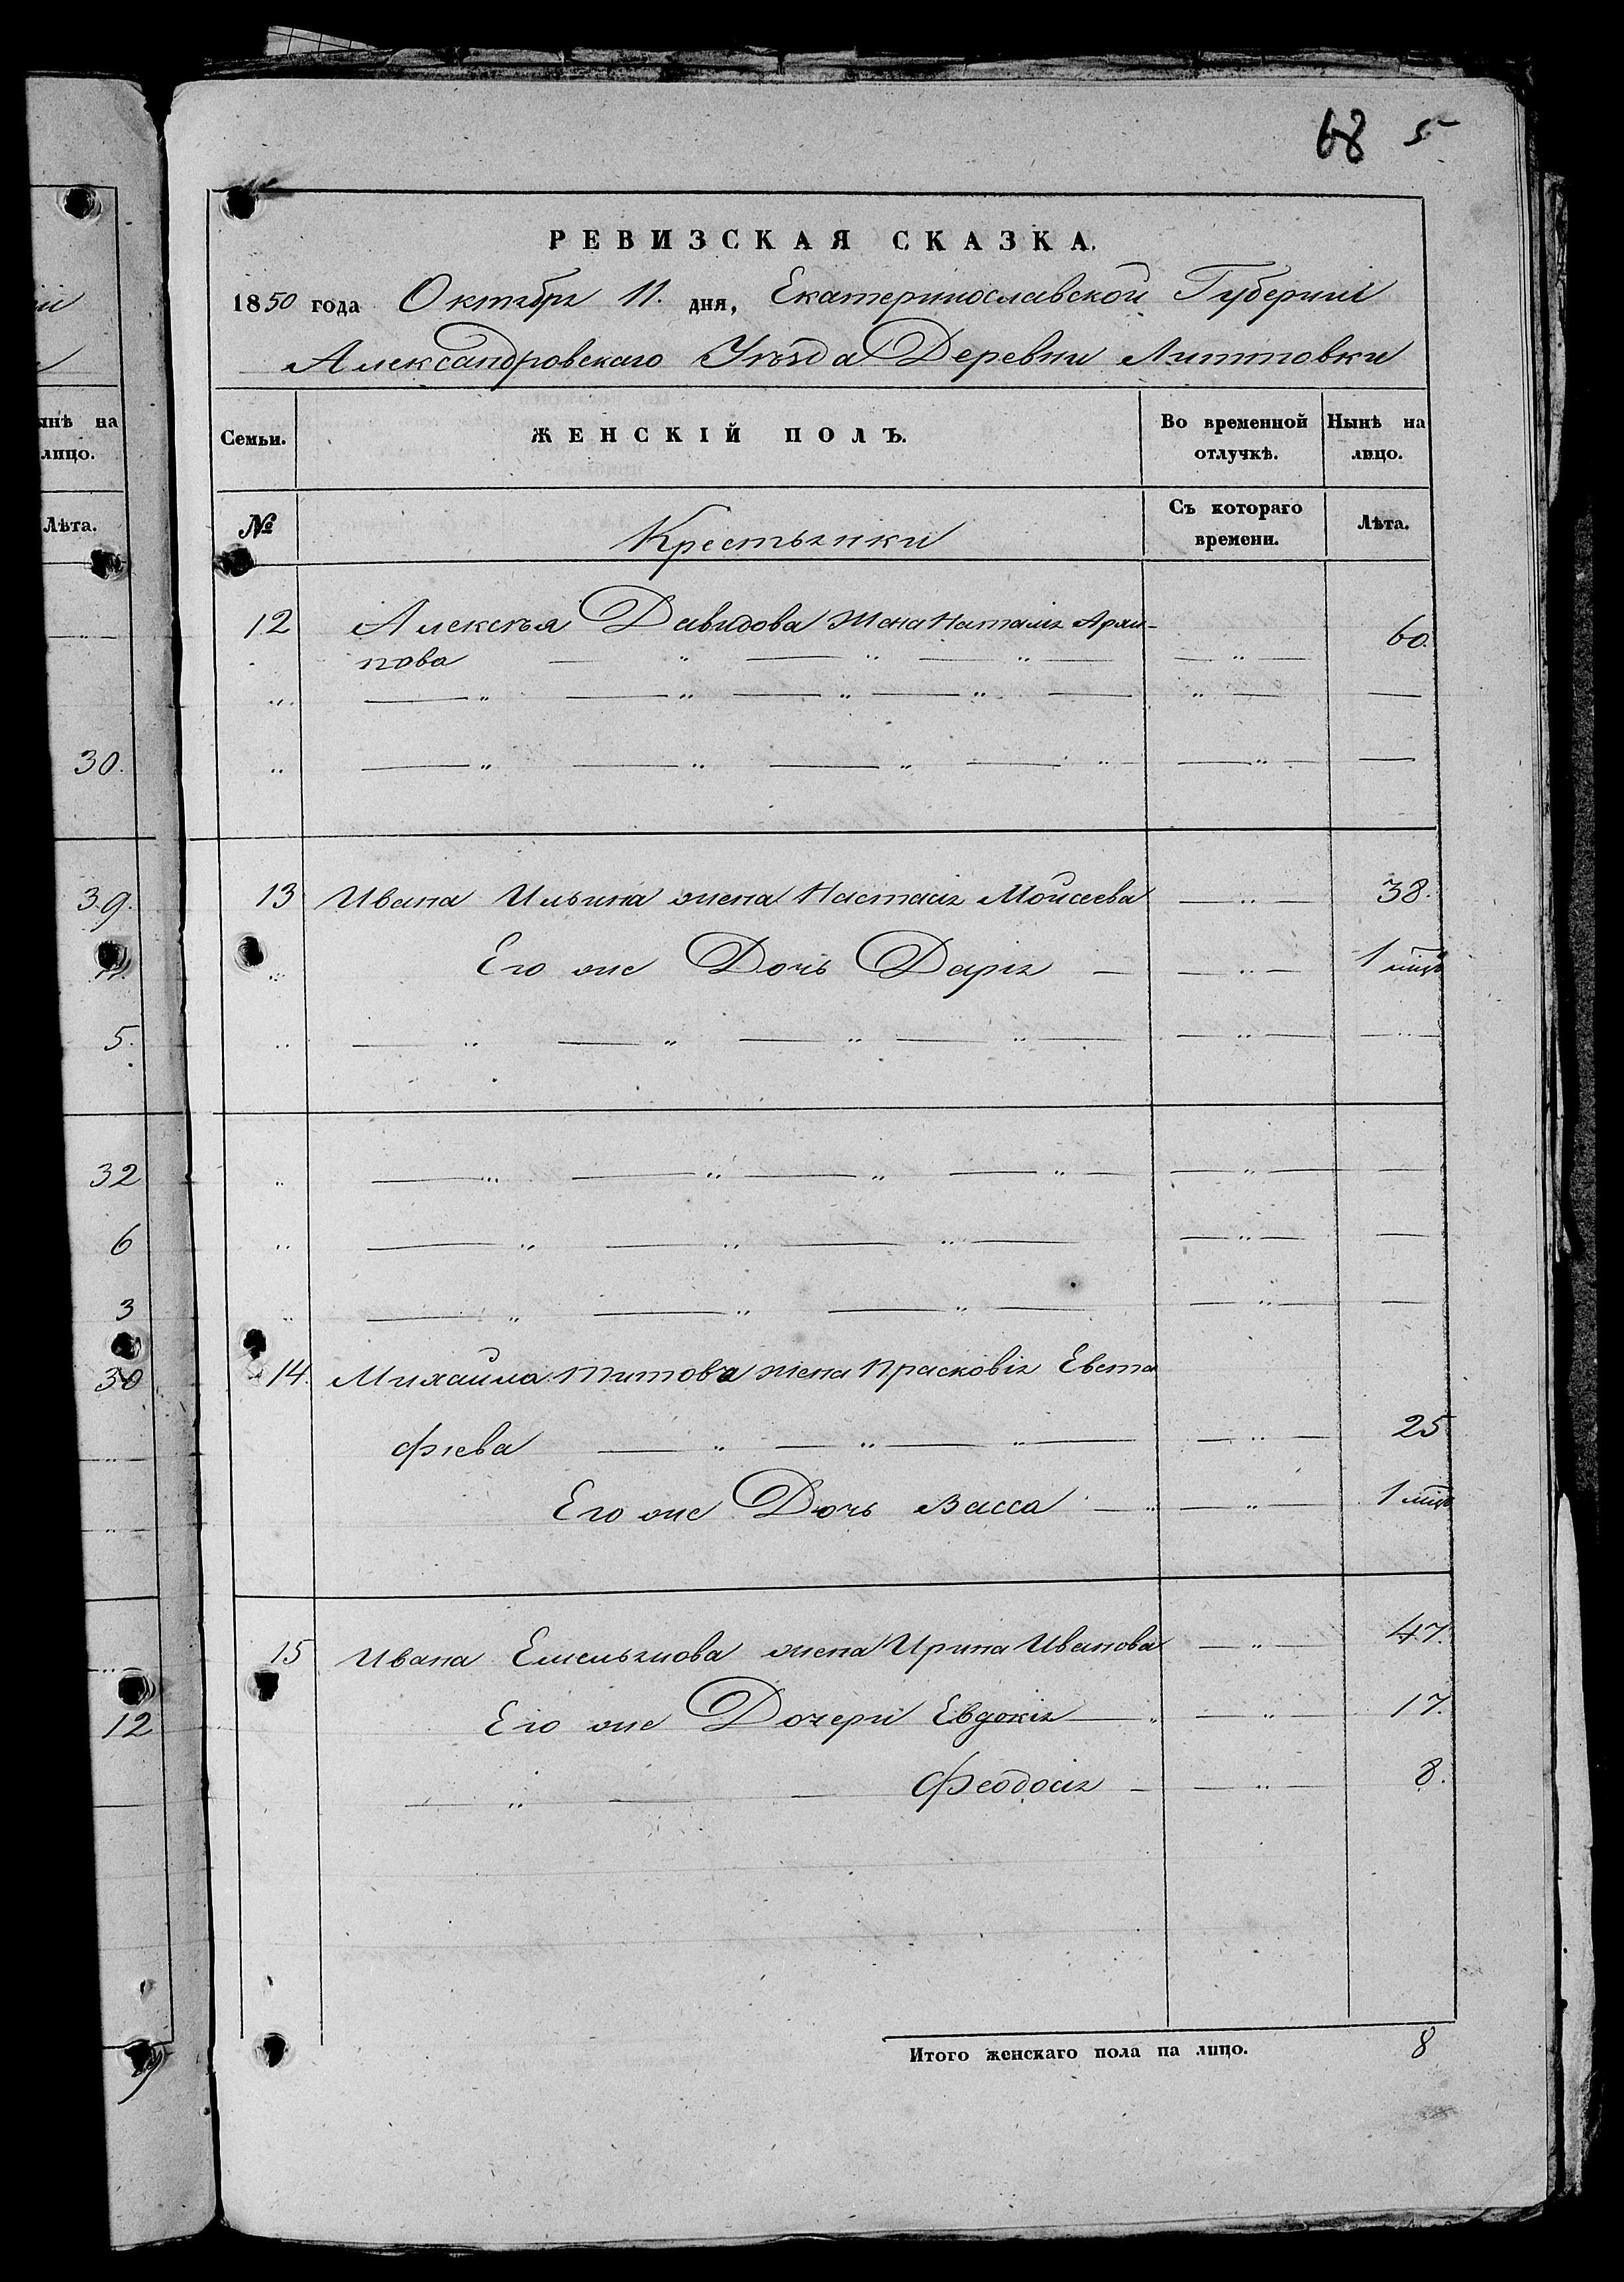 68 5
РЕВИЗСКАЯ СКАЗКА.
1850 года Октября 11. дня, Екатеринославской Губерніи
Александровскаго Уѣзда Деревни Литтовки
Семьи. ЖЕНСКІЙ ПОЛЪ. Во временной отлучкѣ. Нынѣ на лицо.
№ Крестьянки Съ котораго времени. Лѣта.
12 Алексѣя Давыдова Жена Наталія Архи-
пова 60.
13 Ивана Ильина жена Настасія Мойсеева 38.
Его же Дочь Дарія 1 мѣц
14. Михайла Титова жена Прасковія Евста
фіева 25
Его же Дочь Васса 1 мѣц
15 Ивана Емельянова жена Ирина Иванова 47.
Его же Дочери Евдокія 17.
Феодосія 8.
Итого женскаго пола на лицо. 8
нѣ на
лицо.
Лѣта.
30.
39.
11.
5.
32
6
3
30
12
9